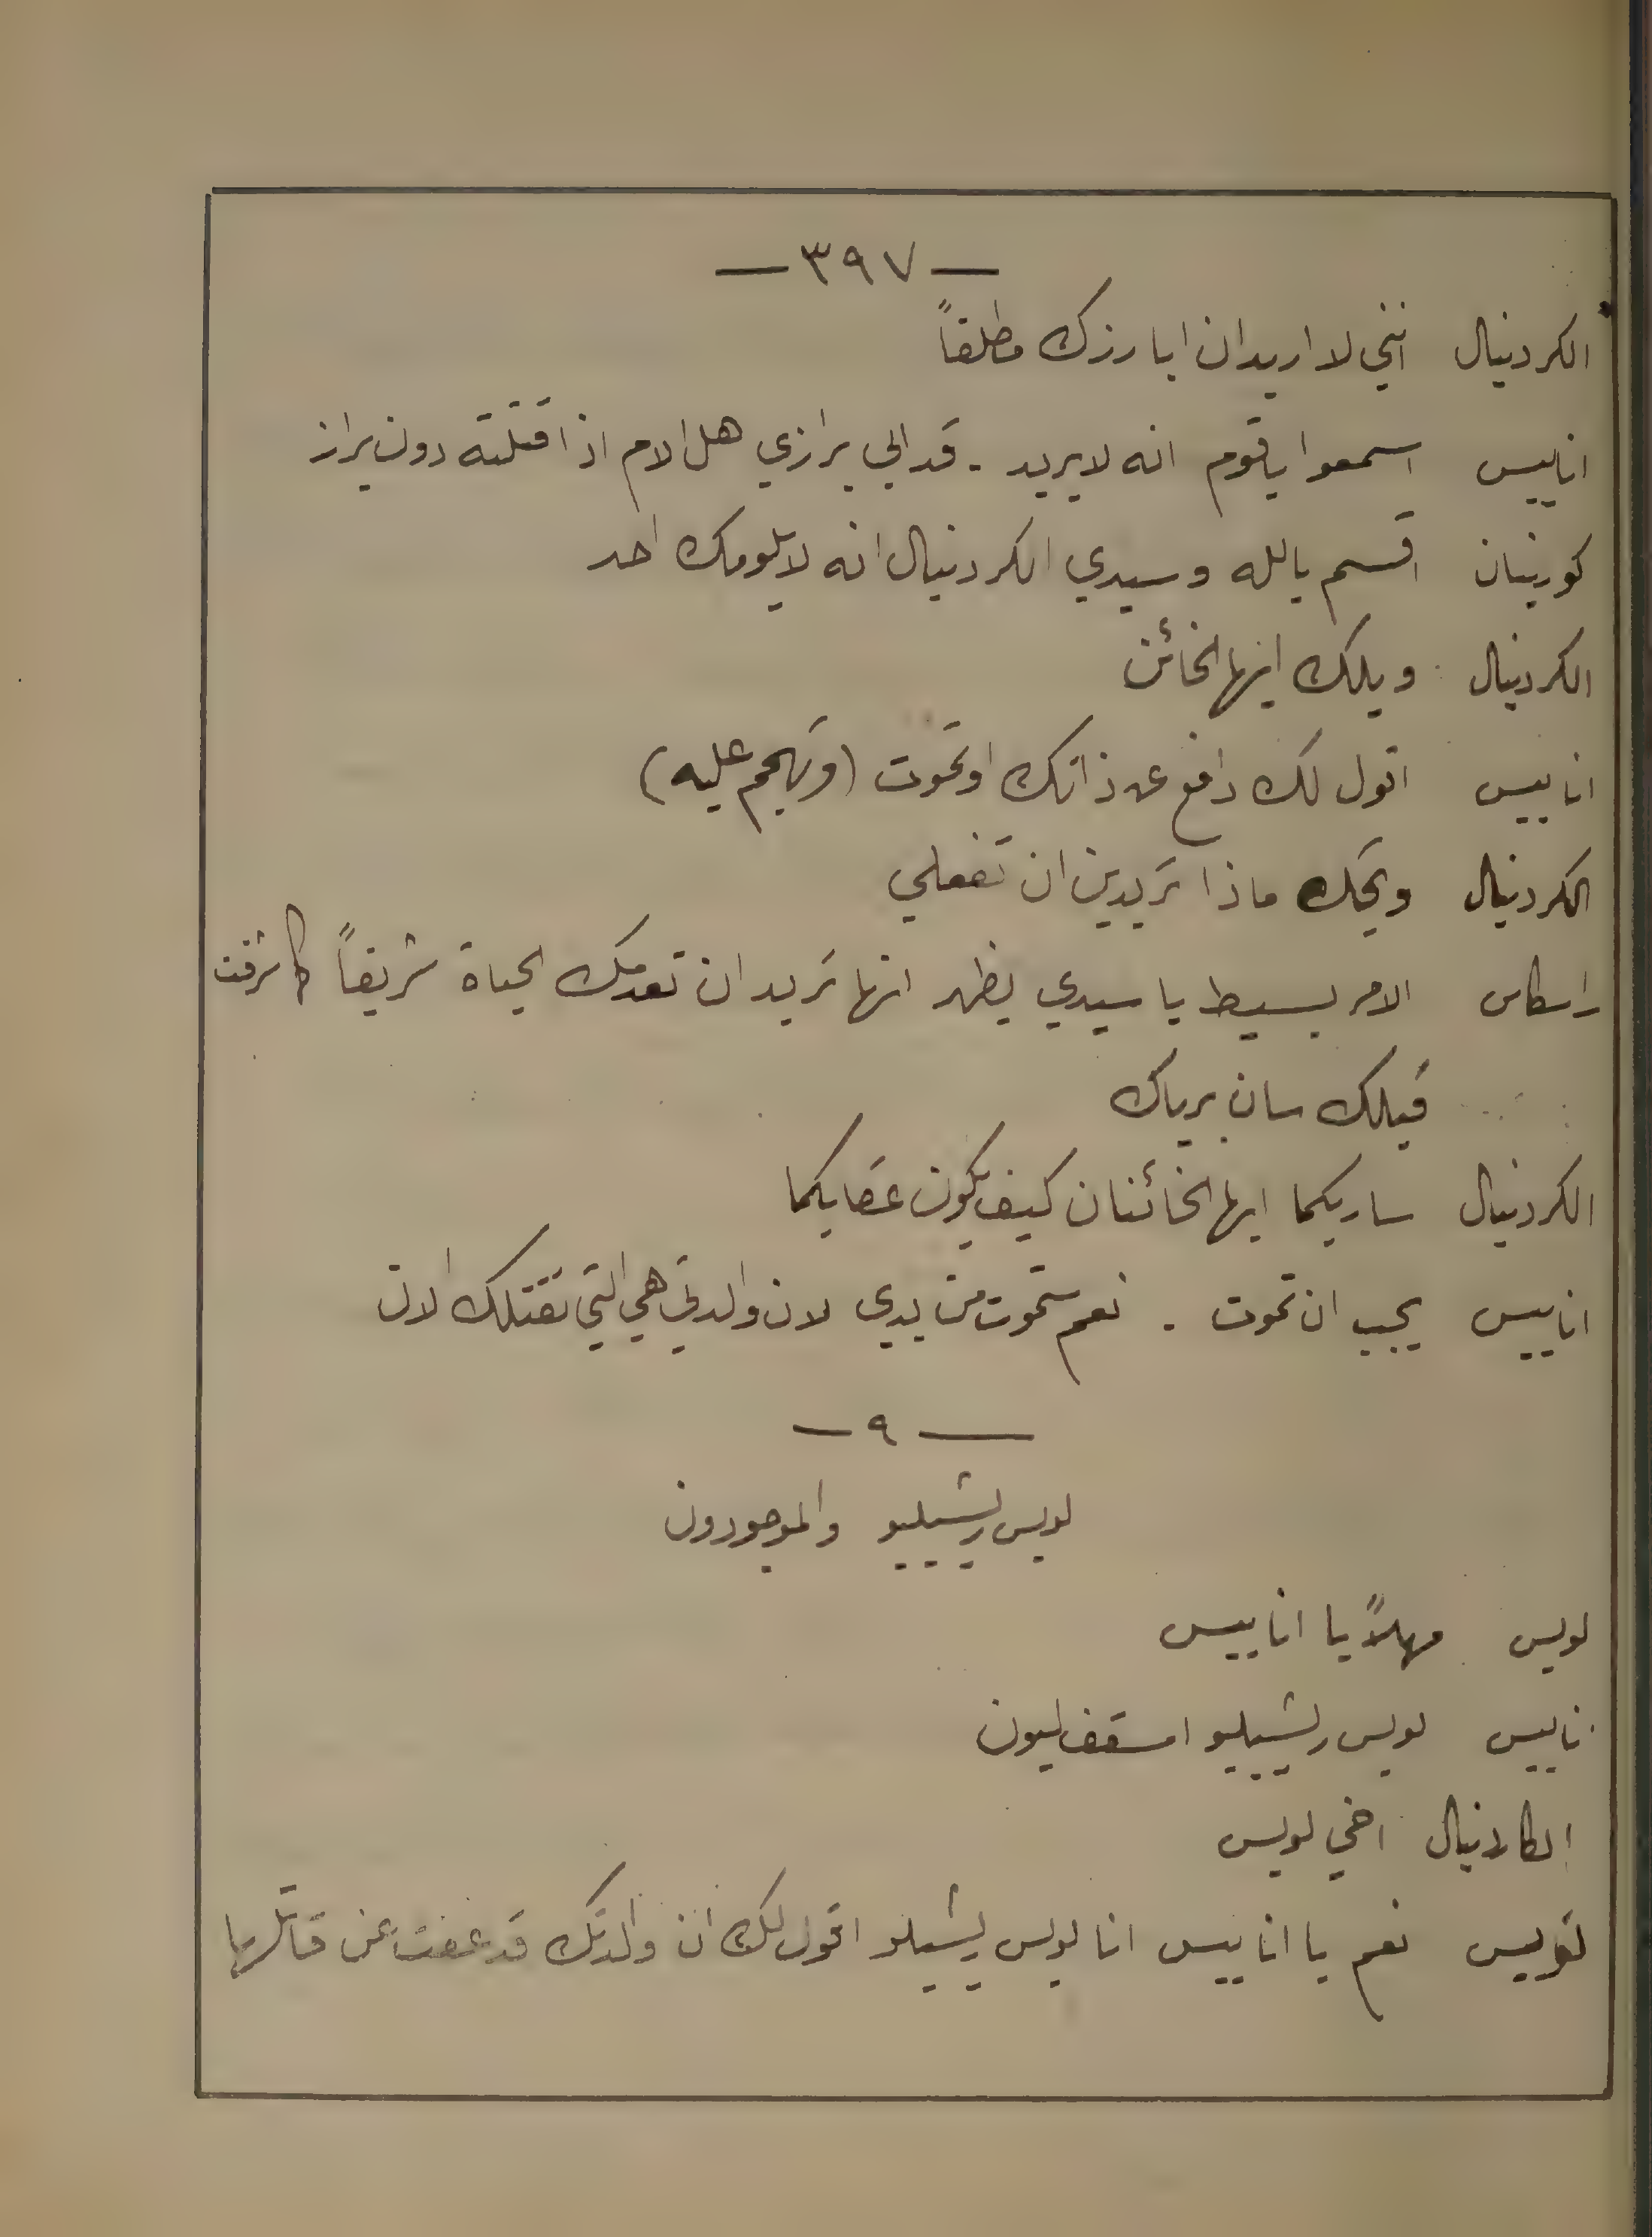 — ٣٩٧ —
الكردينال انني لا اريد ان ابارزك مطلقاً
اناييس اسمعوا يا قوم انه لا يريد - قد ابي برازي هل الام اذا قتلته دون براز
كورينان اقسم بالله وسيدي الكردينال انه لا يلومك احد
الكردينال ويلك ايها الخائن
اناييس اقول لك دافع عن ذاتك او تموت (وتهجم عليه)
الكردينال ويحك ماذا تريدين ان تفعلي
راسكاس الامر بسيط يا سيدي يظهر انها تريد ان تعدمك الحياة شريفاً كما شرفت
قبلك سان برياك
الكردينال ساريكما ايها الخائنان كيف يكون عقابكما
اناييس يجب ان تموت . نعم ستموت من يدي لان والدتي هي التي تقتلك الان
— ٩ —
لويس ريشيليو والموجودون
لويس مهلاً يا اناييس
اناييس لويس ريشيليو اسقف ليون
الكاردينال اخي لويس
لويس نعم يا اناييس انا لويس ريشيلو اقول لك ان والدتك قد عفت عن قاتلها